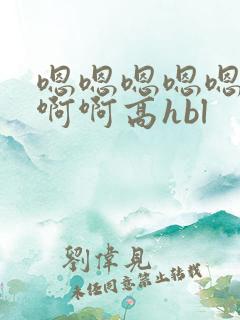 嗯嗯嗯嗯嗯
啊啊高hbl
劉偉見
未经同意禁止转载